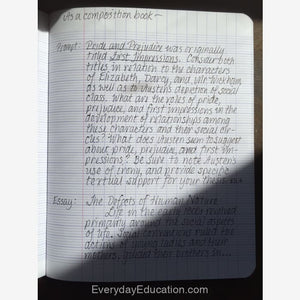 vs a composition book~
Prompt: Pride and Prejudice was originally
titled First Impressions. Consider both
titles in relation to the characters
of Elizabeth, Darcy, and Mr. Wickham,
as well as to Austen's depiction of social
class. What are the roles of pride,
prejudice, and first impressions in the
development of relationships among
these characters and their social cir-
cles? What does Austen seem to suggest
about pride, prejudice, and first im-
pressions? Be sure to note Austen's
use of irony, and provide specific
textual support for your thesis.
Essay: The Defects of Human Nature
Life in the early 1800s revolved
primarily around the social aspects
of life. Social conventions ruled the
actions of young ladies and their
mothers, aided their brothers in...
EverydayEducation.com